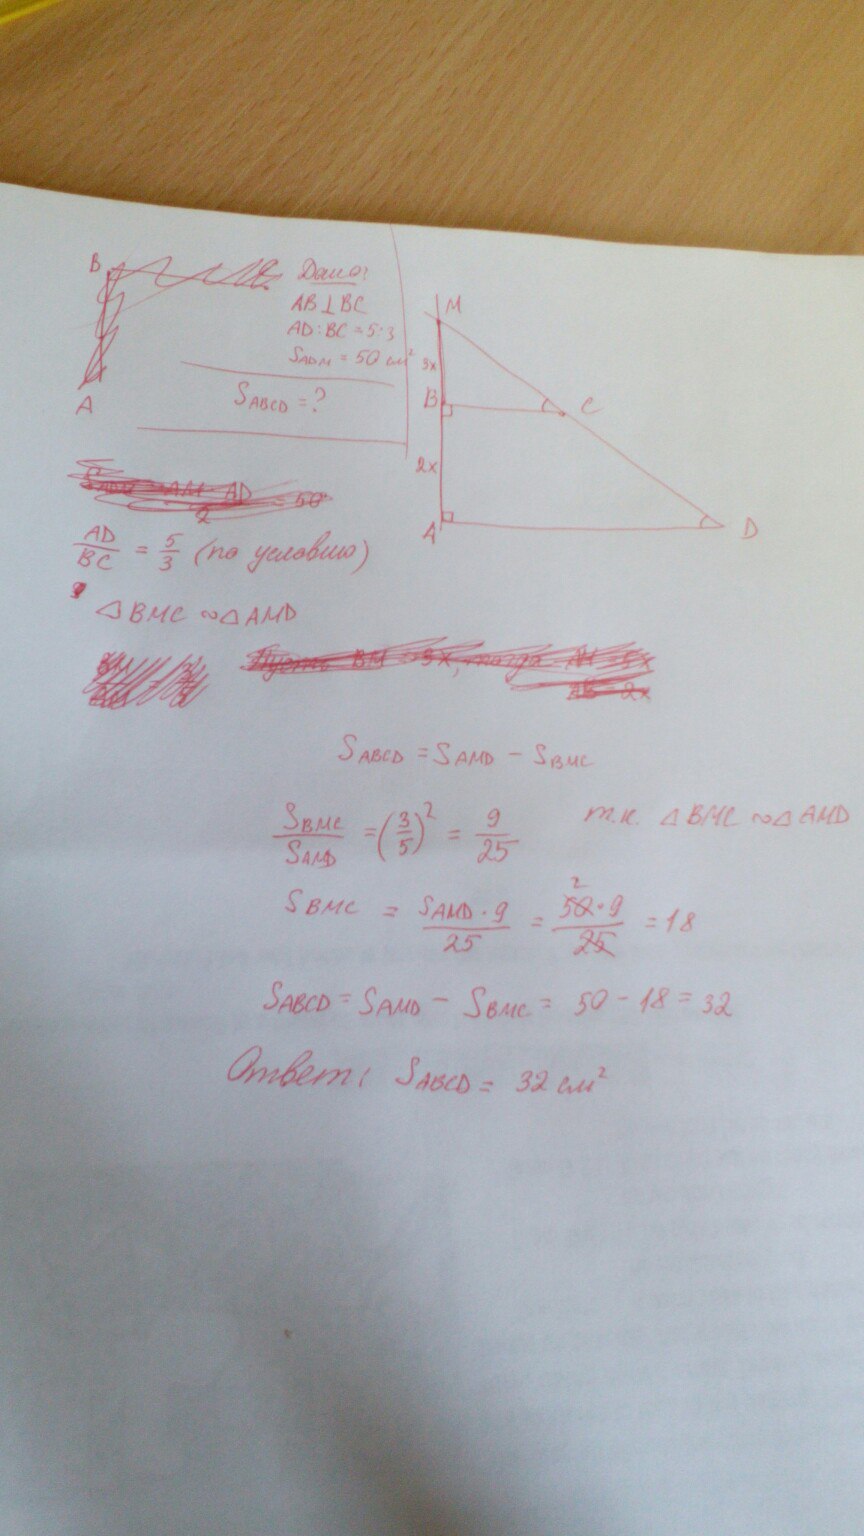 B
Дано:
AB ⊥ BC
AD : BC = 5:3
S_ADM = 50 см²
A
S_ABCD = ?
M
3x
B
C
2x
A
D
AD/BC = 5/3 (по условию)
△BMC ∾ △AMD
S_ABCD = S_AMD − S_BMC
S_BMC/S_AMD = (3/5)² = 9/25 т.к. △BMC ∾ △AMD
S_BMC = S_AMD · 9/25 = 50 · 9/25 = 18
2
S_ABCD = S_AMD − S_BMC = 50 − 18 = 32
Ответ: S_ABCD = 32 см²